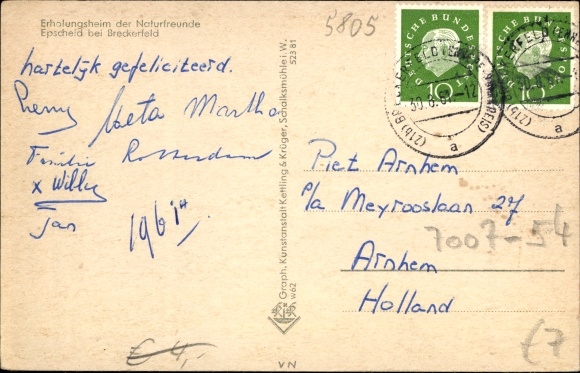 Erholungsheim der Naturfreunde
Epscheid bei Breckerfeld
5805
hartelijk gefeliciteerd.
Meta Martha
Familie Rotterdam
x Willy
Jan
1961
€ 4,-
Graph. Kunstanstalt Kettling & Krüger, Schalksmühle i. W.
52381
w62
VN
DEUTSCHE BUNDESPOST
10
DEUTSCHE BUNDESPOST
10
(21b) BRECKERFELD (ENNEPE-RUHRKREIS)
a
a
Piet Arnhem
p/a Meyrooslaan 27
7007-54
Arnhem
Holland
€7